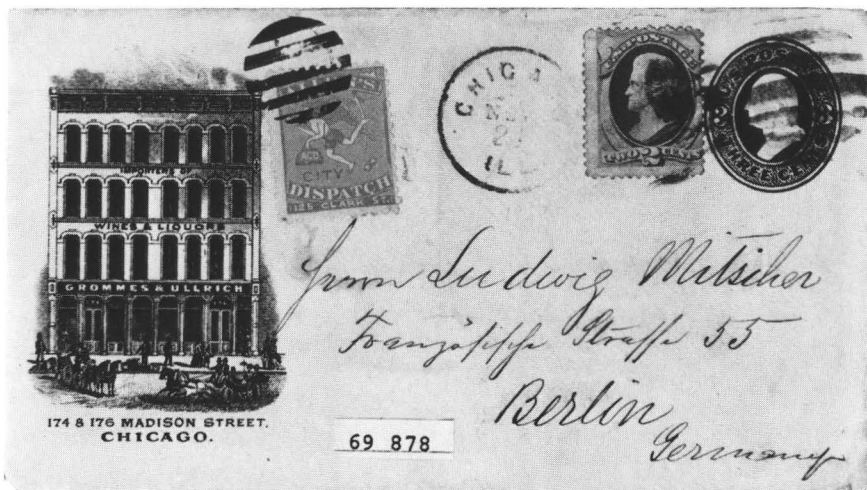 IMPORTERS OF
WINES & LIQUORS
GROMMES & ULLRICH
174 & 176 MADISON STREET.
CHICAGO.
CITY
DISPATCH
CLARK ST.
CHICA
ILL
U.S. POSTAGE
TWO 2 CENTS
U.S. POS
THREE CEN
Herrn Ludwig Mitscher
Französische Straße 55
Berlin
Germany
69 878